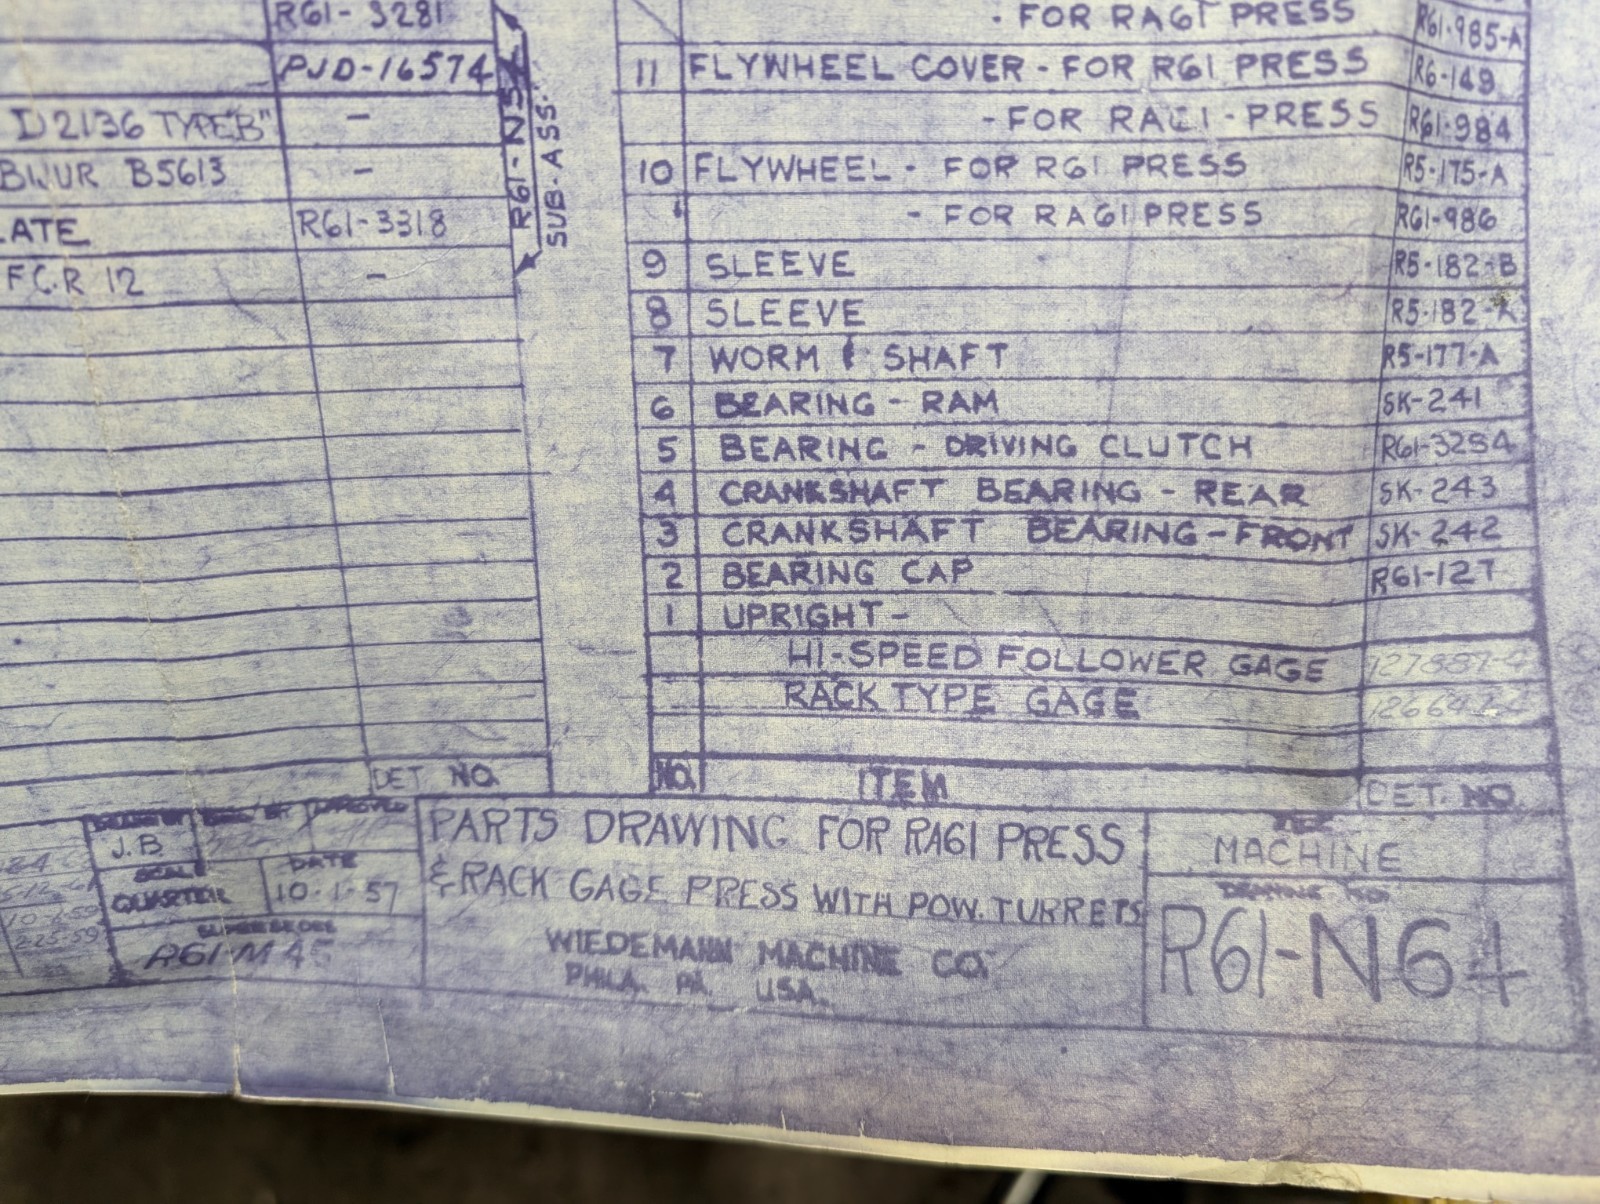 R61-3281
PJD-16574
D2136 TYPE "B" -
BIJUR B5613 -
LATE R61-3318
F.C.R 12 -
DET. NO.
SUB-ASS.
- FOR RA61 PRESS R61-985-A
11 FLYWHEEL COVER - FOR R61 PRESS R6-149
- FOR RA61 - PRESS R61-984
10 FLYWHEEL - FOR R61 PRESS R5-175-A
- FOR RA61 PRESS R61-986
9 SLEEVE R5-182-B
8 SLEEVE R5-182-A
7 WORM & SHAFT R5-177-A
6 BEARING - RAM SK-241
5 BEARING - DRIVING CLUTCH
4 CRANKSHAFT BEARING - REAR SK-243
3 CRANKSHAFT BEARING - FRONT SK-242
2 BEARING CAP
1 UPRIGHT -
HI-SPEED FOLLOWER GAGE
RACK TYPE GAGE
NO. ITEM DET. NO.
APPROVED
J.B.
SCALE
QUARTER
DATE
10-1-57
SUPERSEDES
PARTS DRAWING FOR RA61 PRESS
& RACK GAGE PRESS WITH POW. TURRETS
WIEDEMANN MACHINE CO.
PHILA. PA. USA.
MACHINE
DRAWING NO.
R61-N64